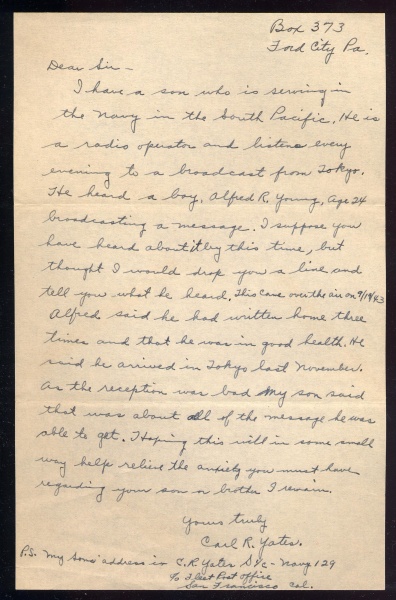 Box 373
Ford City Pa.
Dear Sir -
I have a son who is serving in
the Navy in the South Pacific. He is
a radio operator and listens every
evening to a broadcast from Tokyo.
He heard a boy, Alfred R. Young, Age 24
broadcasting a message. I suppose you
have heard about it by this time, but
thought I would drop you a line and
tell you what he heard. This came over the air on 9/19/43
Alfred said he had written home three
times and that he was in good health. He
said he arrived in Tokyo last November.
As the reception was bad my son said
that was about all of the message he was
able to get. Hoping this will in some small
way help relieve the anxiety you must have
regarding your son or brother I remain.
Yours truly
Carl R. Yates.
P.S. My sons address is C.R Yates S1/c - Navy 129
c/o Fleet Post Office
San Francisco Cal.